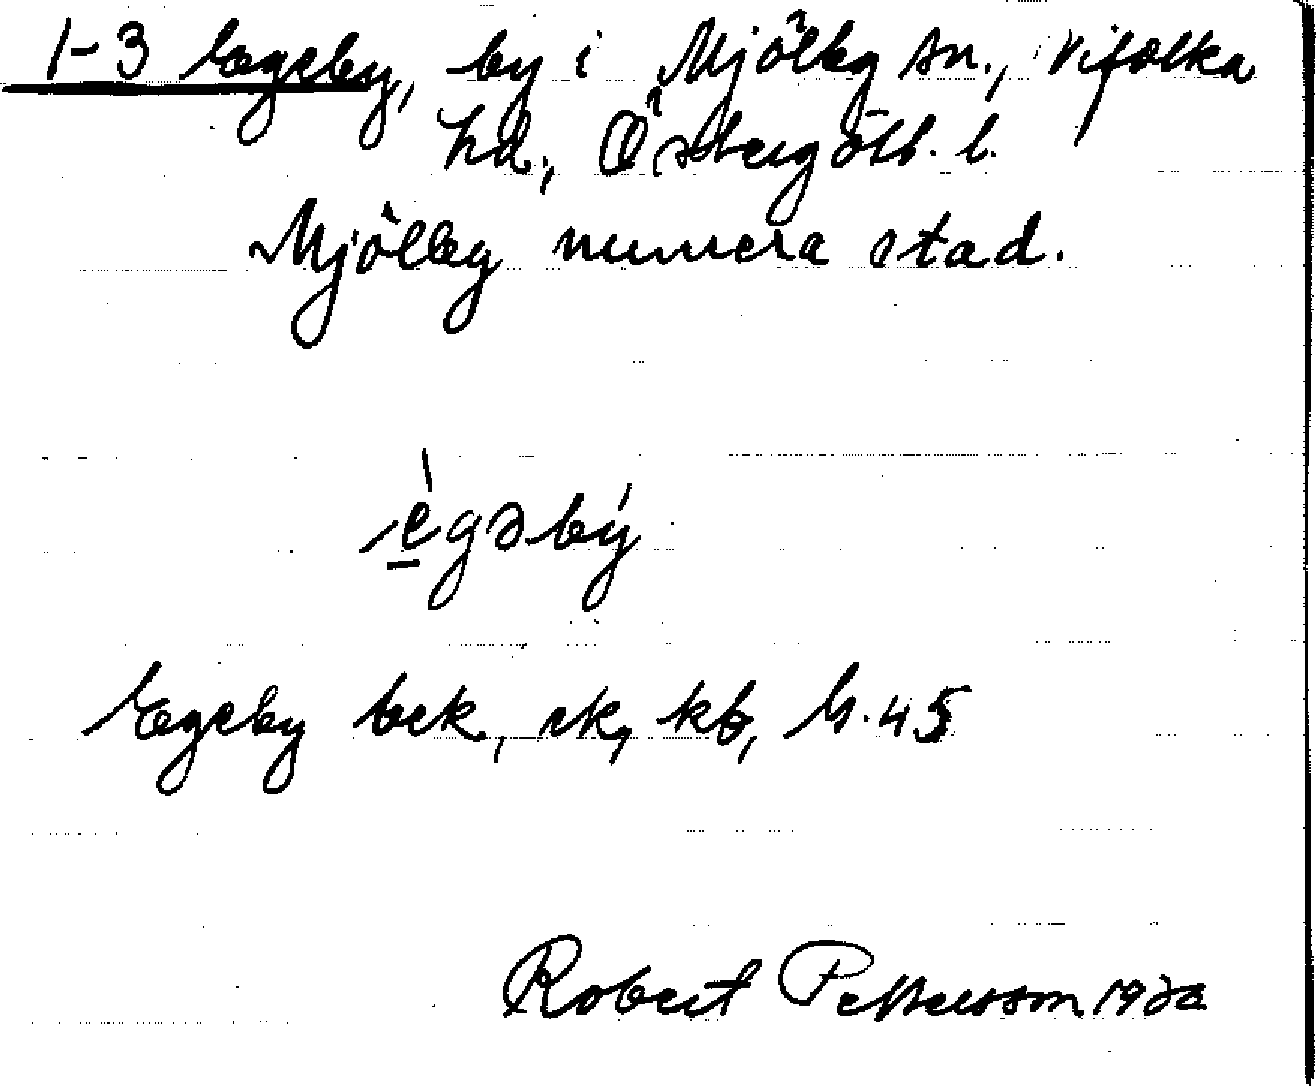 1-3 Egeby, by i Mjölby sn., Vifolka
hd., Östergötl. l.
Mjölby numera stad.
ègəbý
Egeby ek, kb, 45
Robert Pettersson